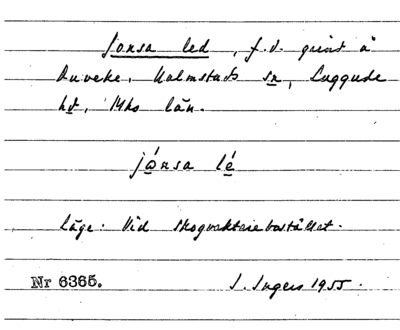 Jonsa led, f.d. grind å
Duveke, Halmstads sn, Luggude
hd, Mhs län.
jɷ́nsa lé
Läge: Vid skogvaktarebostället.
Nr 6365.
I. Ingers 1955.